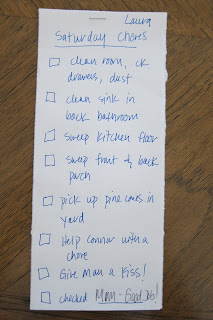 Laura
Saturday Chores
clean room, ck
drawers, dust
clean sink in
back bathroom
sweep kitchen floor
sweep front & back
porch
pick up pine cones in
yard
Help Connor with a
chore
Give Mom a Kiss!
checked Mom - Good Job!